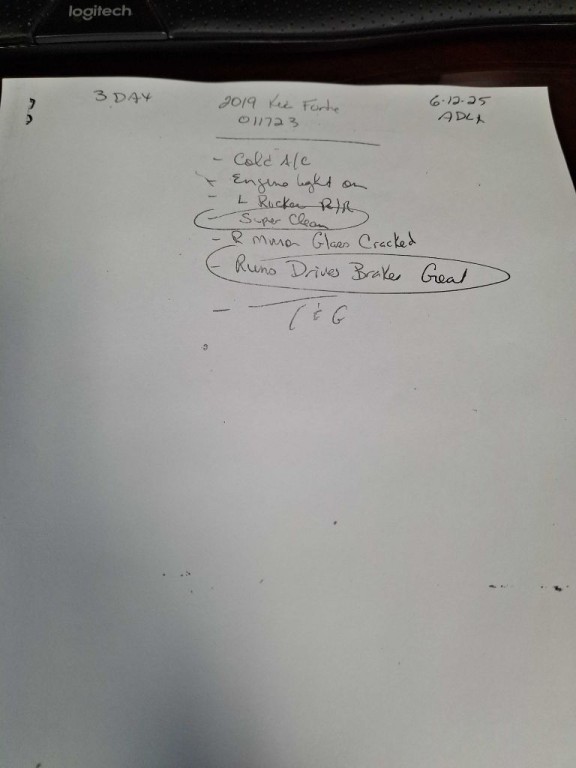 logitech
3 DAY
2019 Kia Forte
6-12-25
011723
ADLR
- Cold A/C
- Engine light on
- L Rocker R/R
- Super Clean
- R Mirror Glass Cracked
- Runs Drives Brakes Great
-